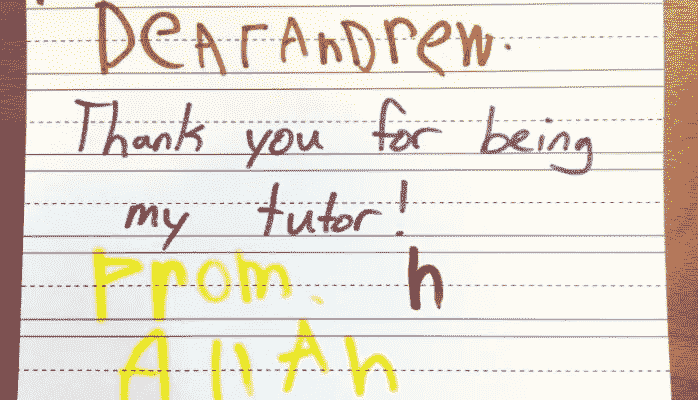 DeAr AnDrew.
Thank you for being
my tutor!
From. h
AllAh